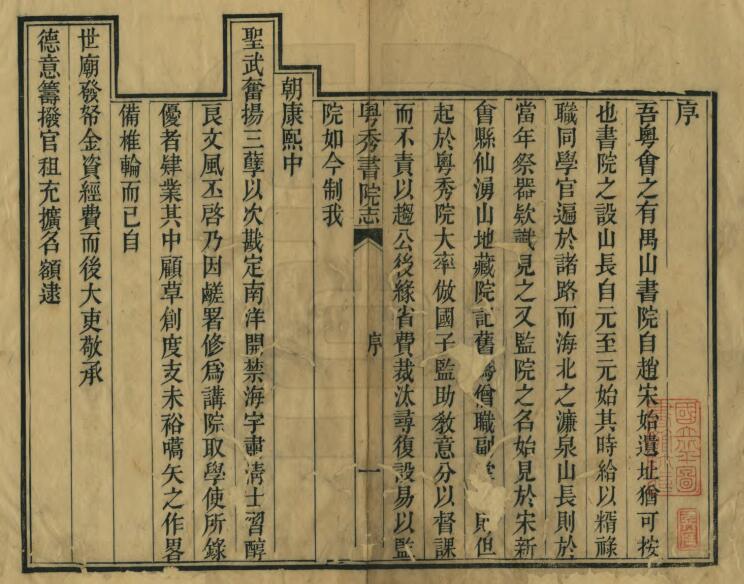 序
吾粵會之有禺山書院自趙宋始遺址猶可按
也書院之設山長自元至元始其時給以糈祿
職同學官遍於諸路而海北之濂泉山長則於
當年祭器欵識見之又監院之名始見於宋新
會縣仙湧山地藏院記舊為僧職副堂則但
起於粵秀院大率倣國子監助教意分以督課
而不責以趨公後緣省費裁汰尋復設易以監
粵秀書院志 序 一
院如今制我
朝康熙中
聖武奮揚三孽以次戡定南洋開禁海宇肅淸士習醇
良文風丕啓乃因鹺署修爲講院取學使所錄
優者肄業其中顧草創度支未裕嚆矢之作畧
備椎輪而已自
世廟發帑金資經費而後大吏敬承
德意籌撥官租充擴名額逮